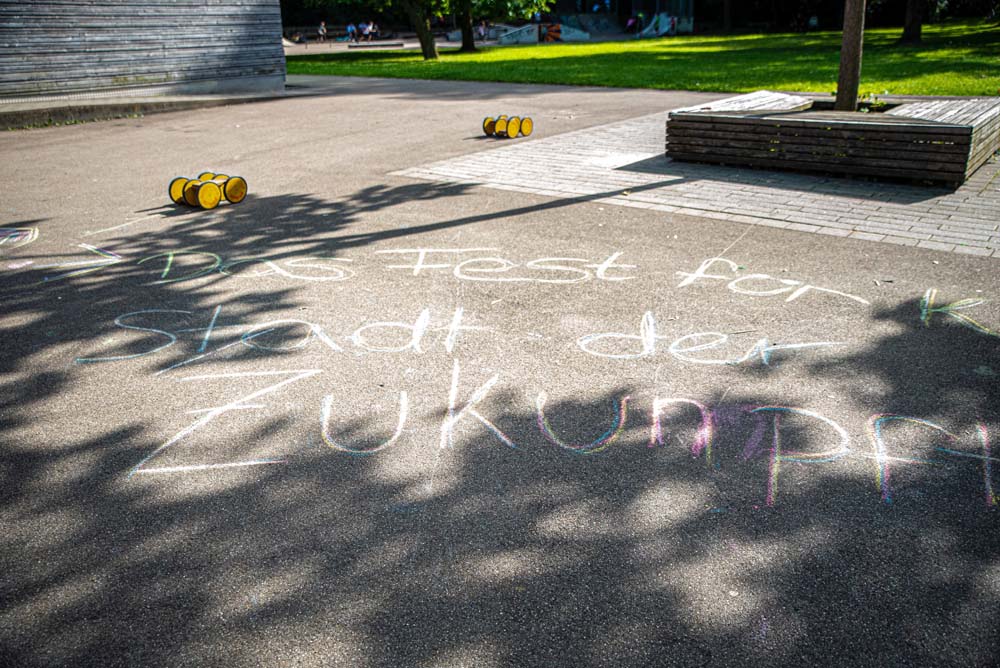 Das Fest for K
Stadt der
Zukunpf